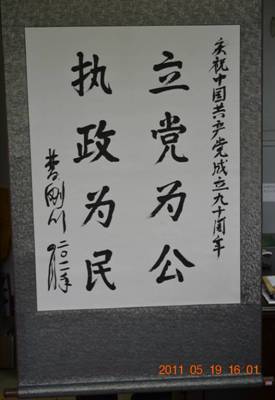 庆祝中国共产党成立九十周年
立党为公
执政为民
曹刚川
二〇一一年
2011 05 19 16 01